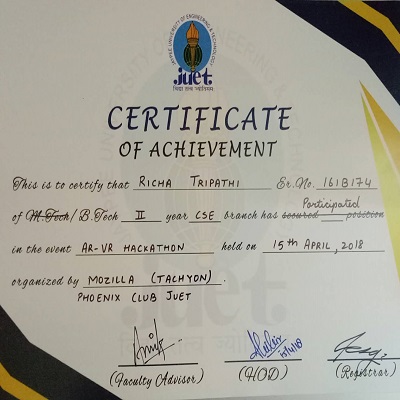 JAYPEE UNIVERSITY OF ENGINEERING & TECHNOLOGY
juet
विद्या तत्व ज्योतिसमः
CERTIFICATE
OF ACHIEVEMENT
This is to certify that RICHA TRIPATHI Er.No. 161B174
Participated
of M.Tech/ B.Tech II year CSE branch has secured ___ position
in the event AR-VR HACKATHON held on 15th APRIL, 2018
organized by MOZILLA (TACHYON).
PHOENIX CLUB JUET
(Faculty Advisor) (HOD) (Registrar)